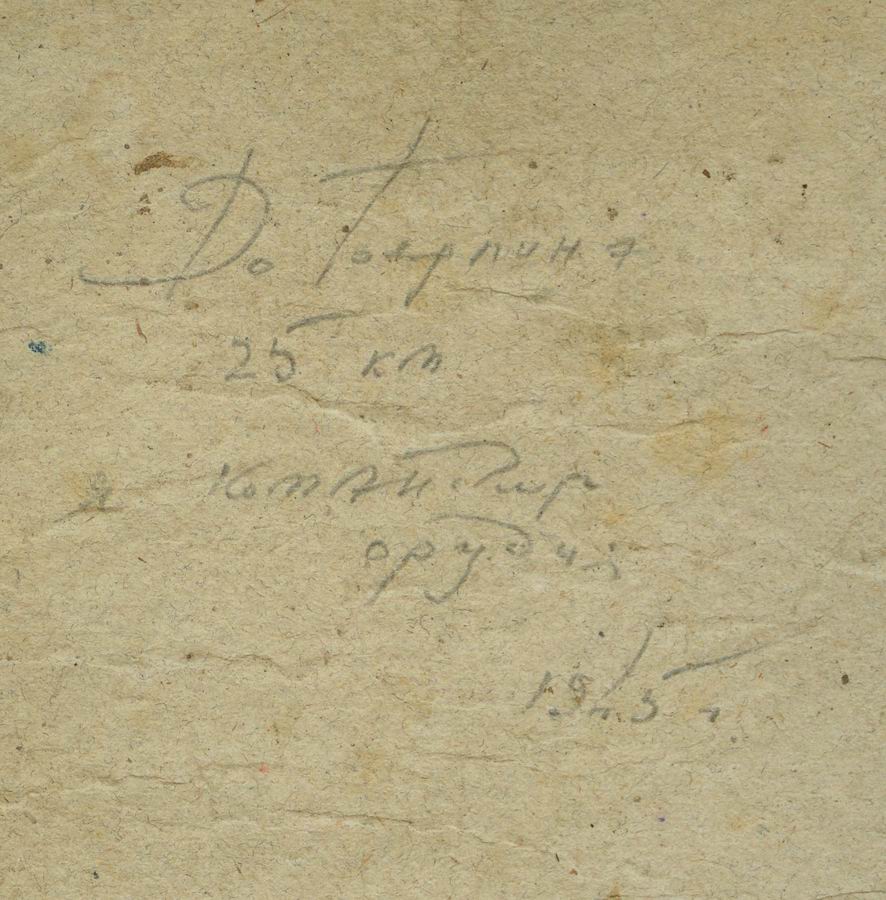 До Берлина
25 км
я командир
орудия
1945 г